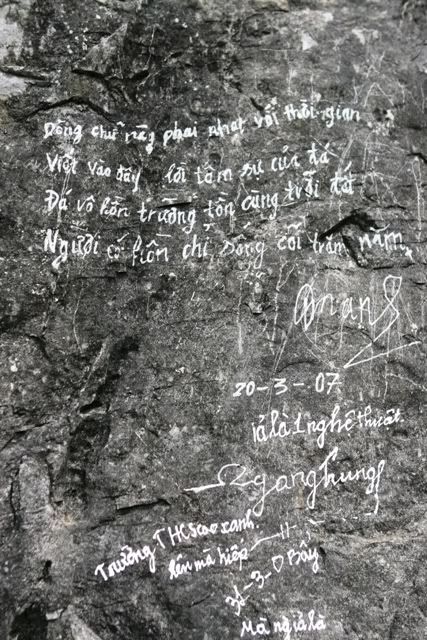 Dòng chữ này phai nhạt với thời gian
Viết vào đây lời tâm sự của đá
Đá vô hồn trường tồn cùng trời đất
Người có hồn chỉ sống cõi trăm năm
20-3-07
iả là 1 nghệ thuật
Trường THCS cao xanh.
lên mà hiếp
31-3-0 Bảy
Mà ng iả là